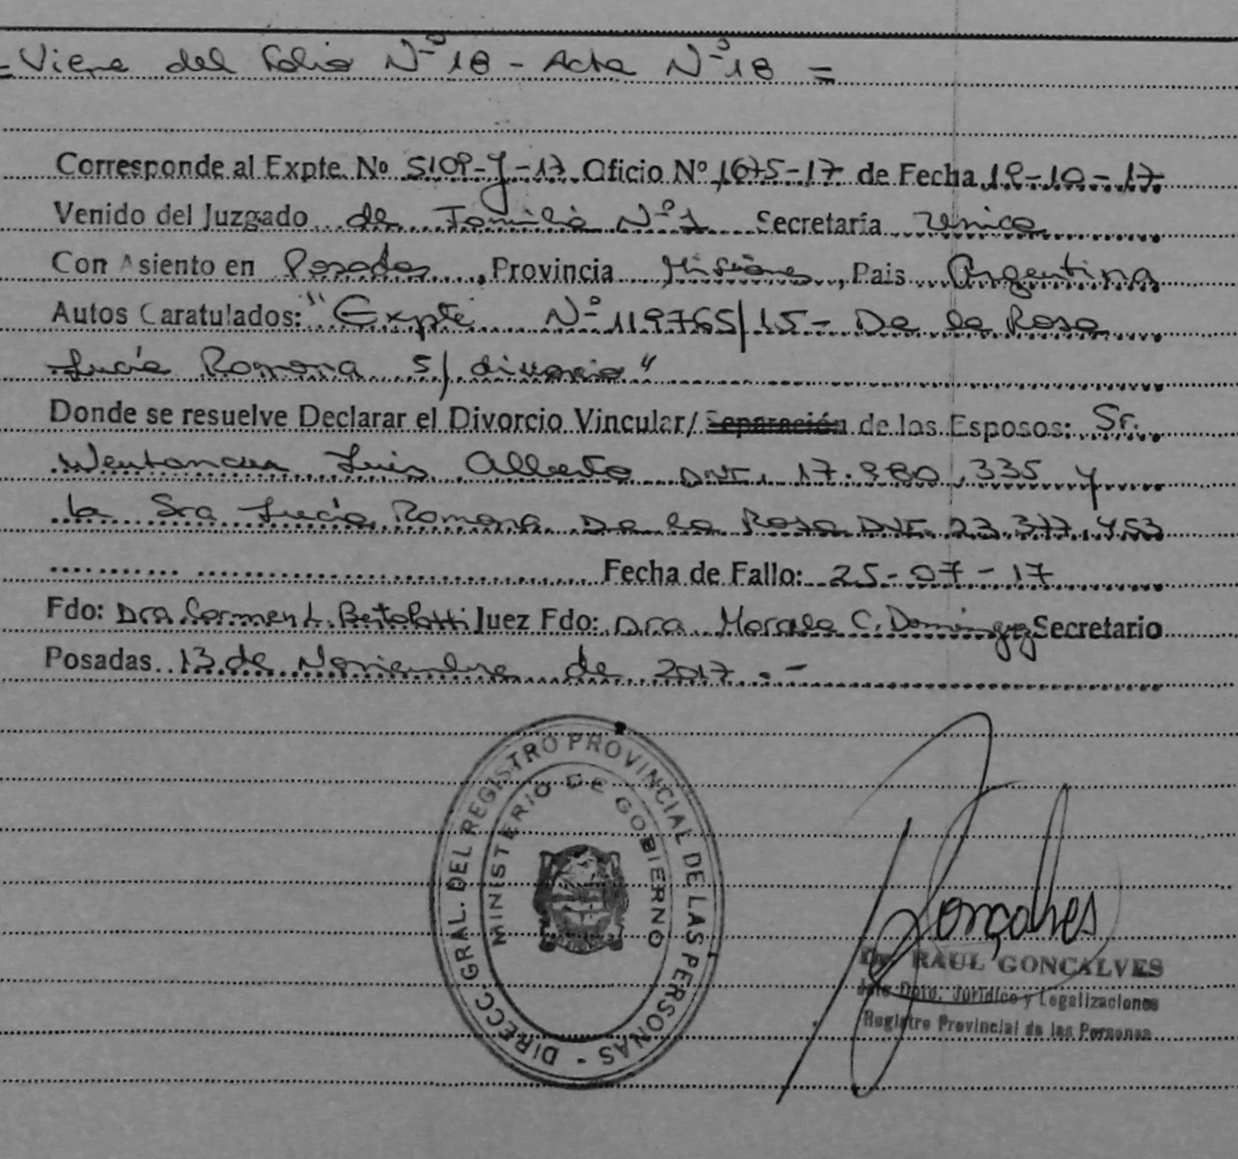 = Viene del Folio Nº 18 - Acta Nº 18 =
Corresponde al Expte. Nº 5109-J-17 Oficio Nº 1675-17 de Fecha 19-10-17
Venido del Juzgado de Familia Nº 1 Secretaría Unica
Con Asiento en Posadas, Provincia Misiones, Pais Argentina
Autos Caratulados: "Expte Nº 119765/15- De la Rosa
Lucía Romona s/ divorcio"
Donde se resuelve Declarar el Divorcio Vincular/ Separación de los Esposos: Sr.
Luis Alberto DNI. 17.980.335 y
la Sra Lucía Romona De la Rosa DNI. 23.377.453
Fecha de Fallo: 25-07-17
Fdo: Dra Carmen L. Juez Fdo: Dra C. Domínguez Secretario
Posadas 13 de Noviembre de 2017.-
DIRECC. GRAL. DEL REGISTRO PROVINCIAL DE LAS PERSONAS -
MINISTERIO DE GOBIERNO
Gonçalves
Dr. RAUL GONÇALVES
Jefe Dpto. Jurídico y Legalizaciones
Registro Provincial de las Personas